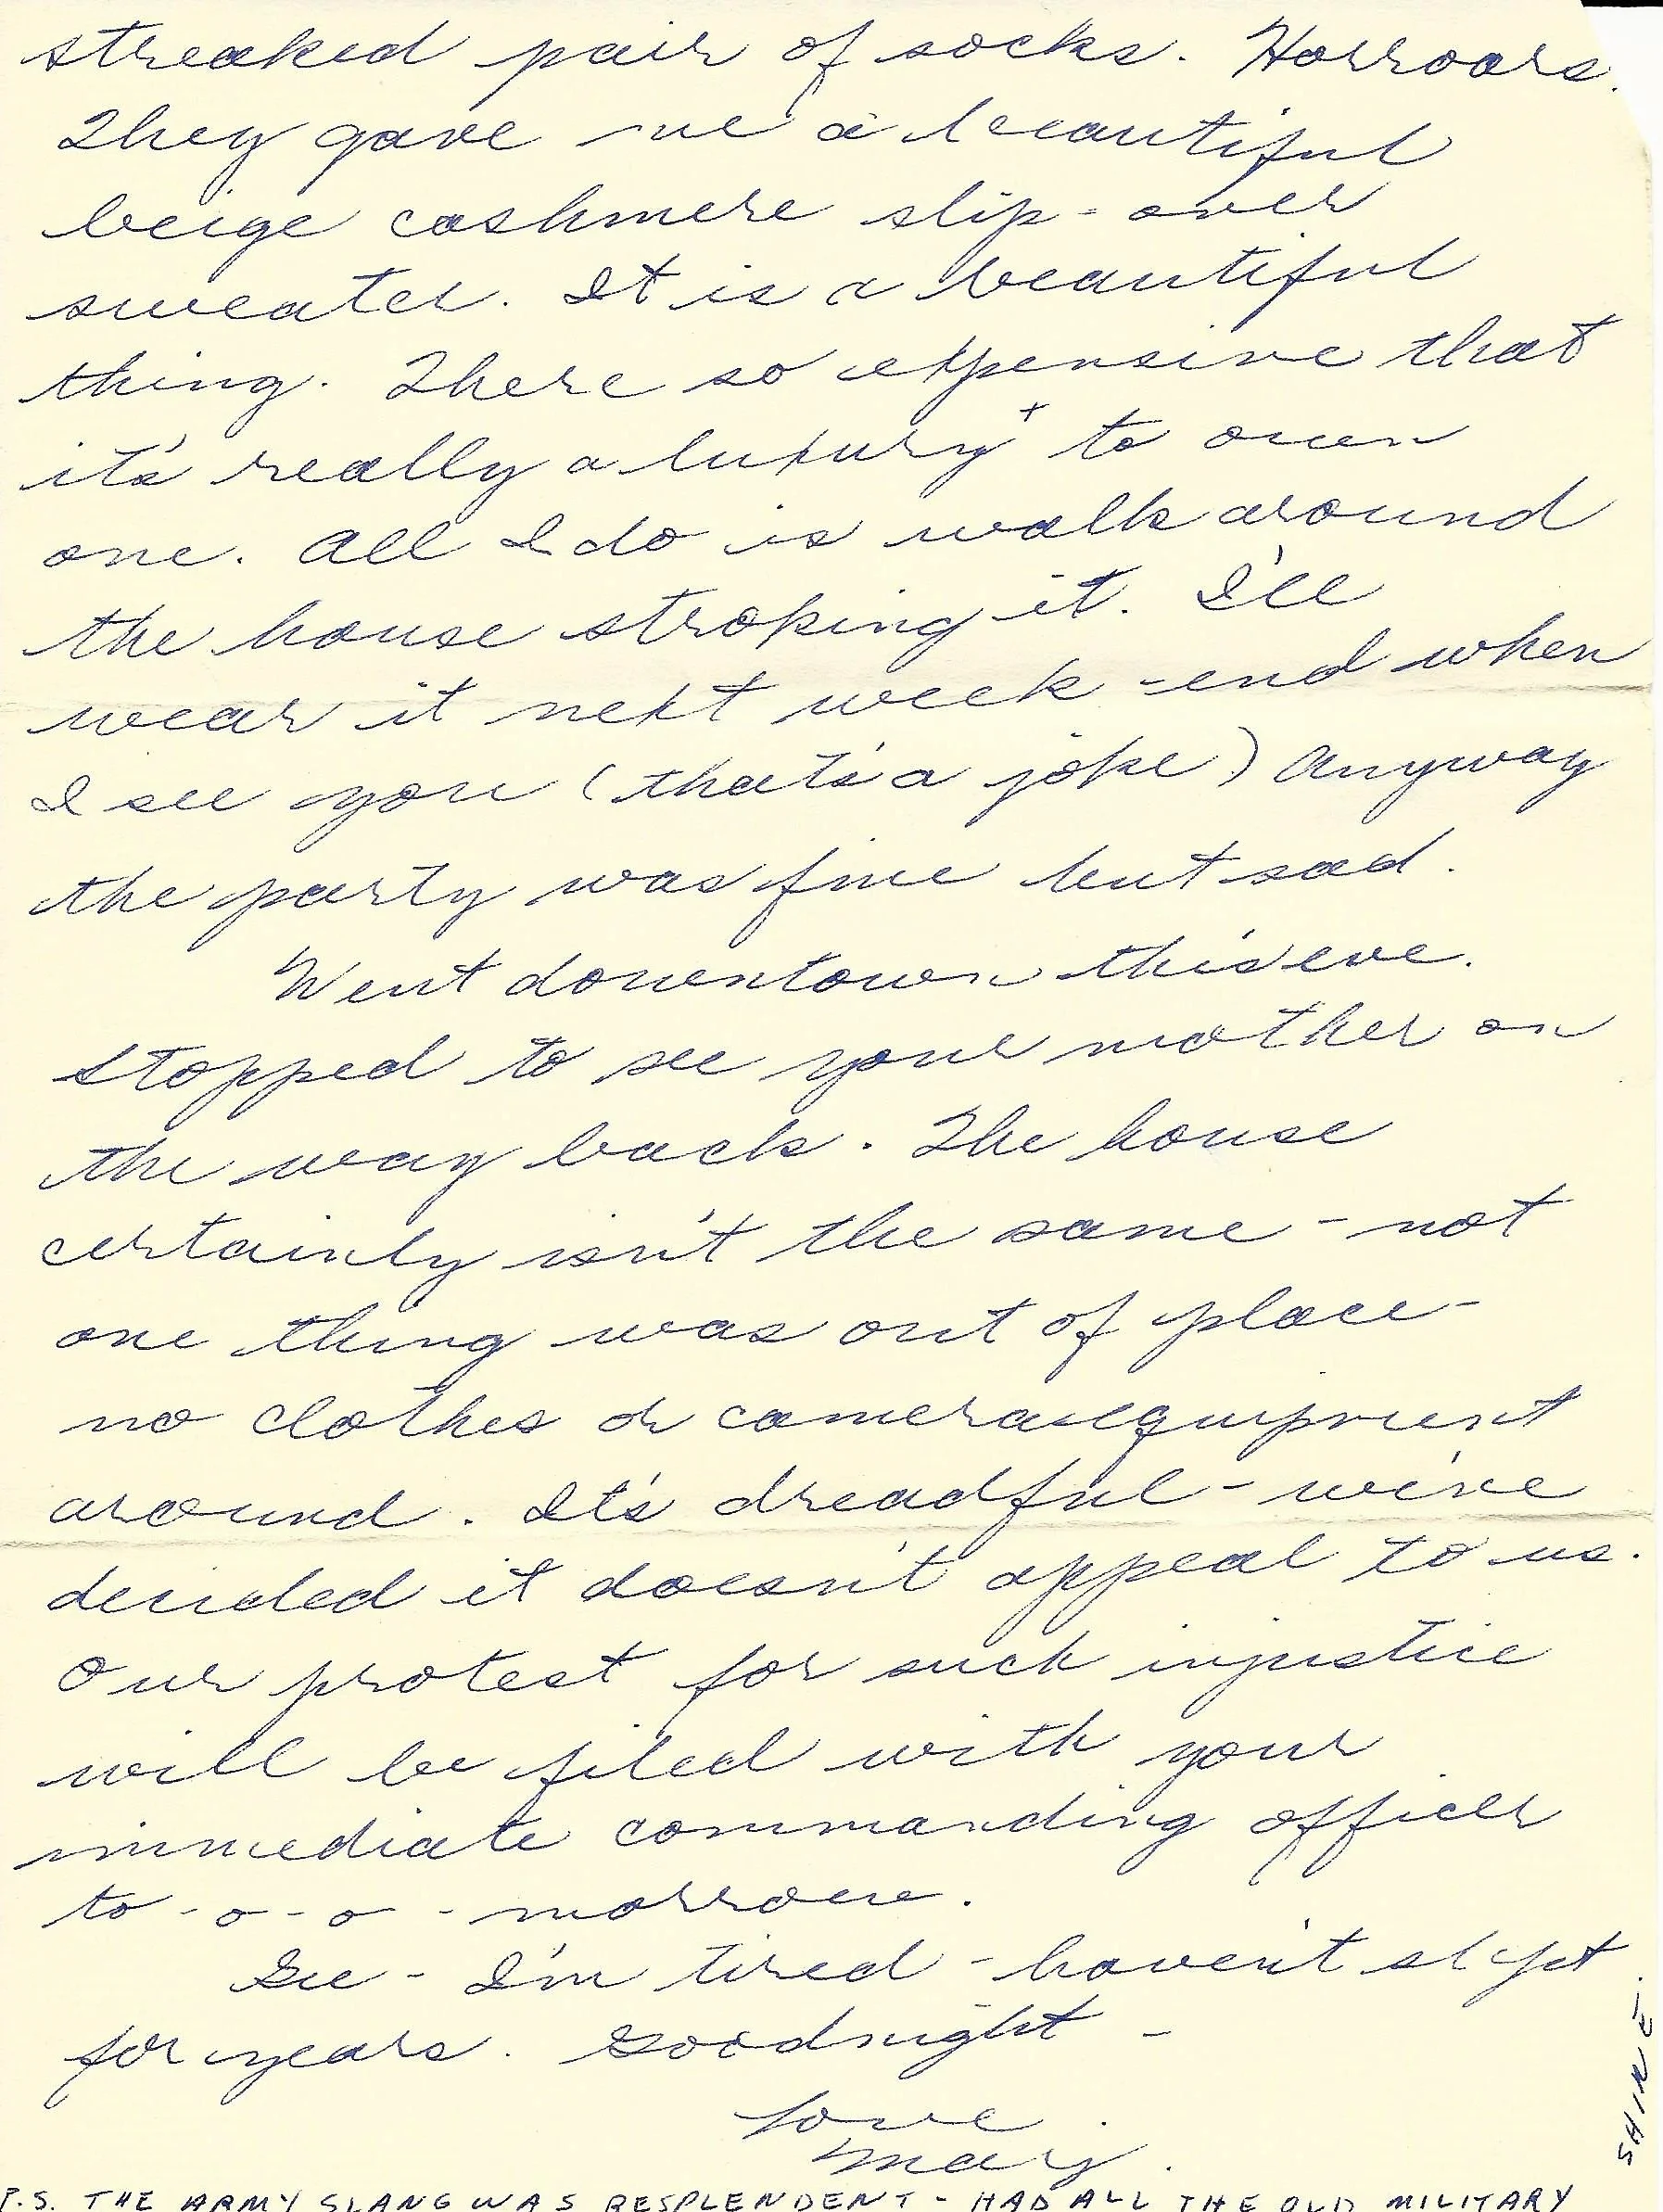 streaked pair of socks. Horroors.
They gave me a beautiful
beige cashmere slip-over
sweater. It is a beautiful
thing. There so expensive that
it's really a luxury + to own
one. All I do is walk around
the house stroking it. I'll
wear it next week-end when
I see you (that's a joke) Anyway
the party was fine but sad.
Went downtown this eve.
Stopped to see your mother on
the way back. The house
certainly isn't the same - not
one thing was out of place -
no clothes or camera equipment
around. It's dreadful - we've
decided it doesn't appeal to us.
Our protest for such injustice
will be filed with your
immediate commanding officer
to-o-o-morrow.
Gee - I'm tired - haven't slept
for years. Goodnight -
Love.
Mary.
P.S. THE ARMY SLANG WAS RESPLENDENT - HAD ALL THE OLD MILITARY
SHINE.